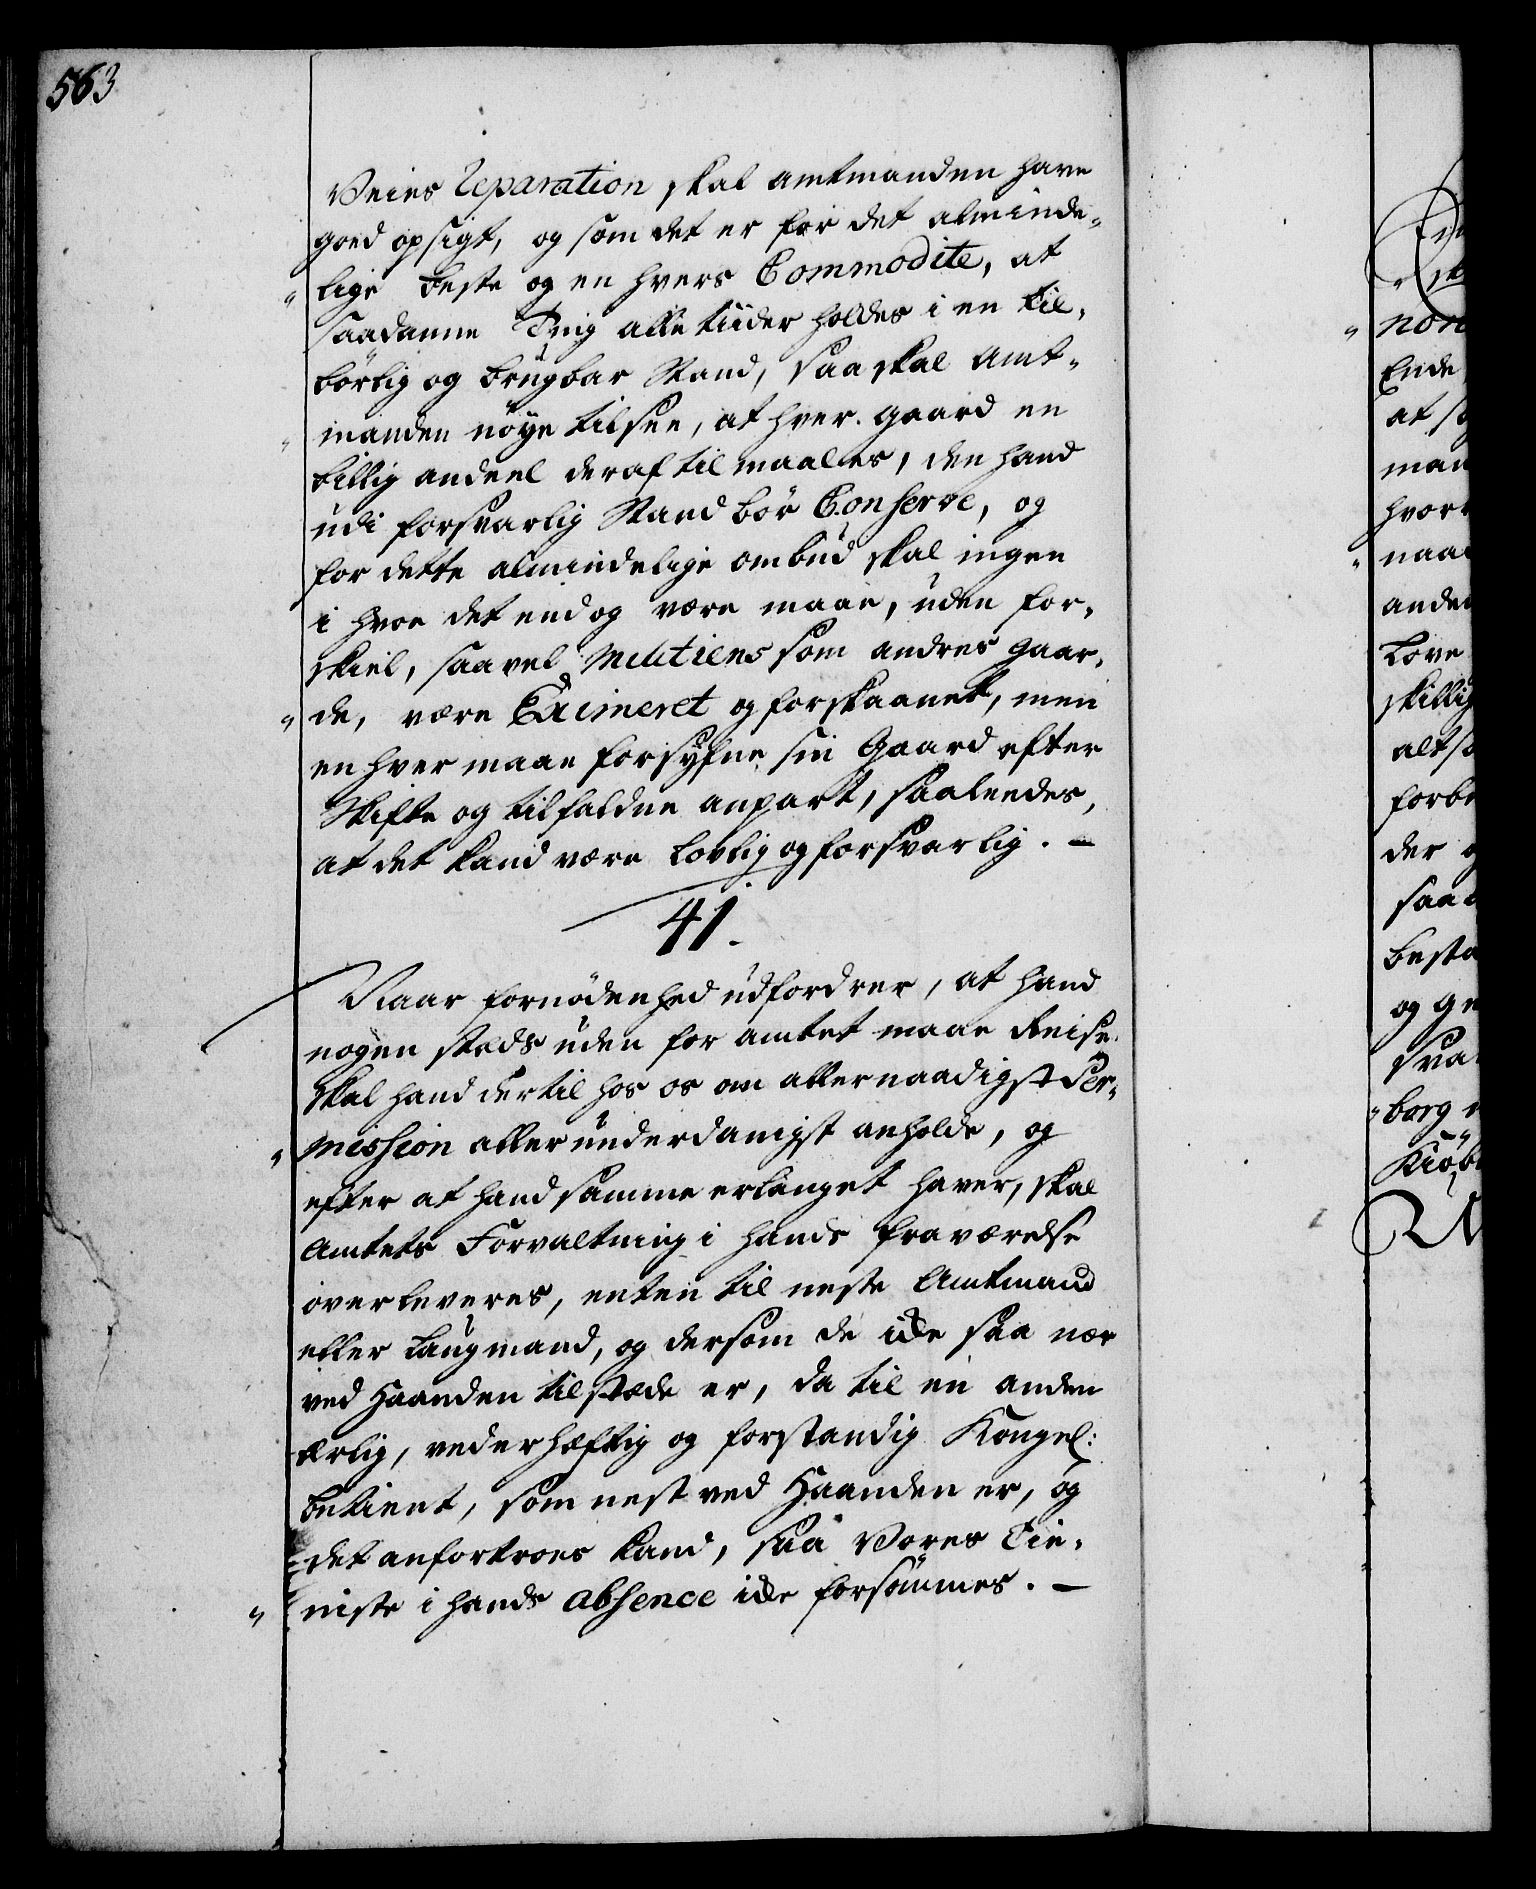 563
Veies Reparation skal amtmanden have
goed opsigt, og som det er for det alminde„
„lige beste og en hvers Commodite, at
saadanne Ting alle tiider holdes i en til„
börlig og brugbar Stand, saa skal Amt„
„manden nöye tilsee, at hver gaard en
billig andeel deraf tilmaales, den hand
udi forsvarlig Stand bör Conserve, og
for dette almindelige ombud skal ingen
i hvoe det endog være maae, uden for„
skiel, saavel Militiens som andres gaar„
„de, være Eximeret og forskaanet, men
en hver maae forsyfne sin Gaard efter
Skifte og tilfaldne anpart, saaleedes,
at det kand være lovlig og forsvarlig. –
41.
Naar fornödenhed udfordrer, at hand
nogen stæds uden for amtet maae Reise,
skal hand dertil hos os om allernaadigst Per„
„mission allerunderdanigst anholde, og
efter at hand samme erlanget haver, skal
Amtets Forvaltning i hands fraværelse
overleveres, enten til neste Amtmand
eller Laugmand, og dersom de icke saa nær
ved Haanden tilstæde er, da til en anden
ærlig, vederhæftig og forstandig Kongel:
betient, som nest ved Haanden er, og
det anfortroes kand, saa Vores Tie„
„niste i hands absence icke forsömmes. –
non
Ende
at
man
hvor
naa
anden
Love
skillig
alt
forbe
der
saa
besta
og ge
sva
„borg
Kiöb